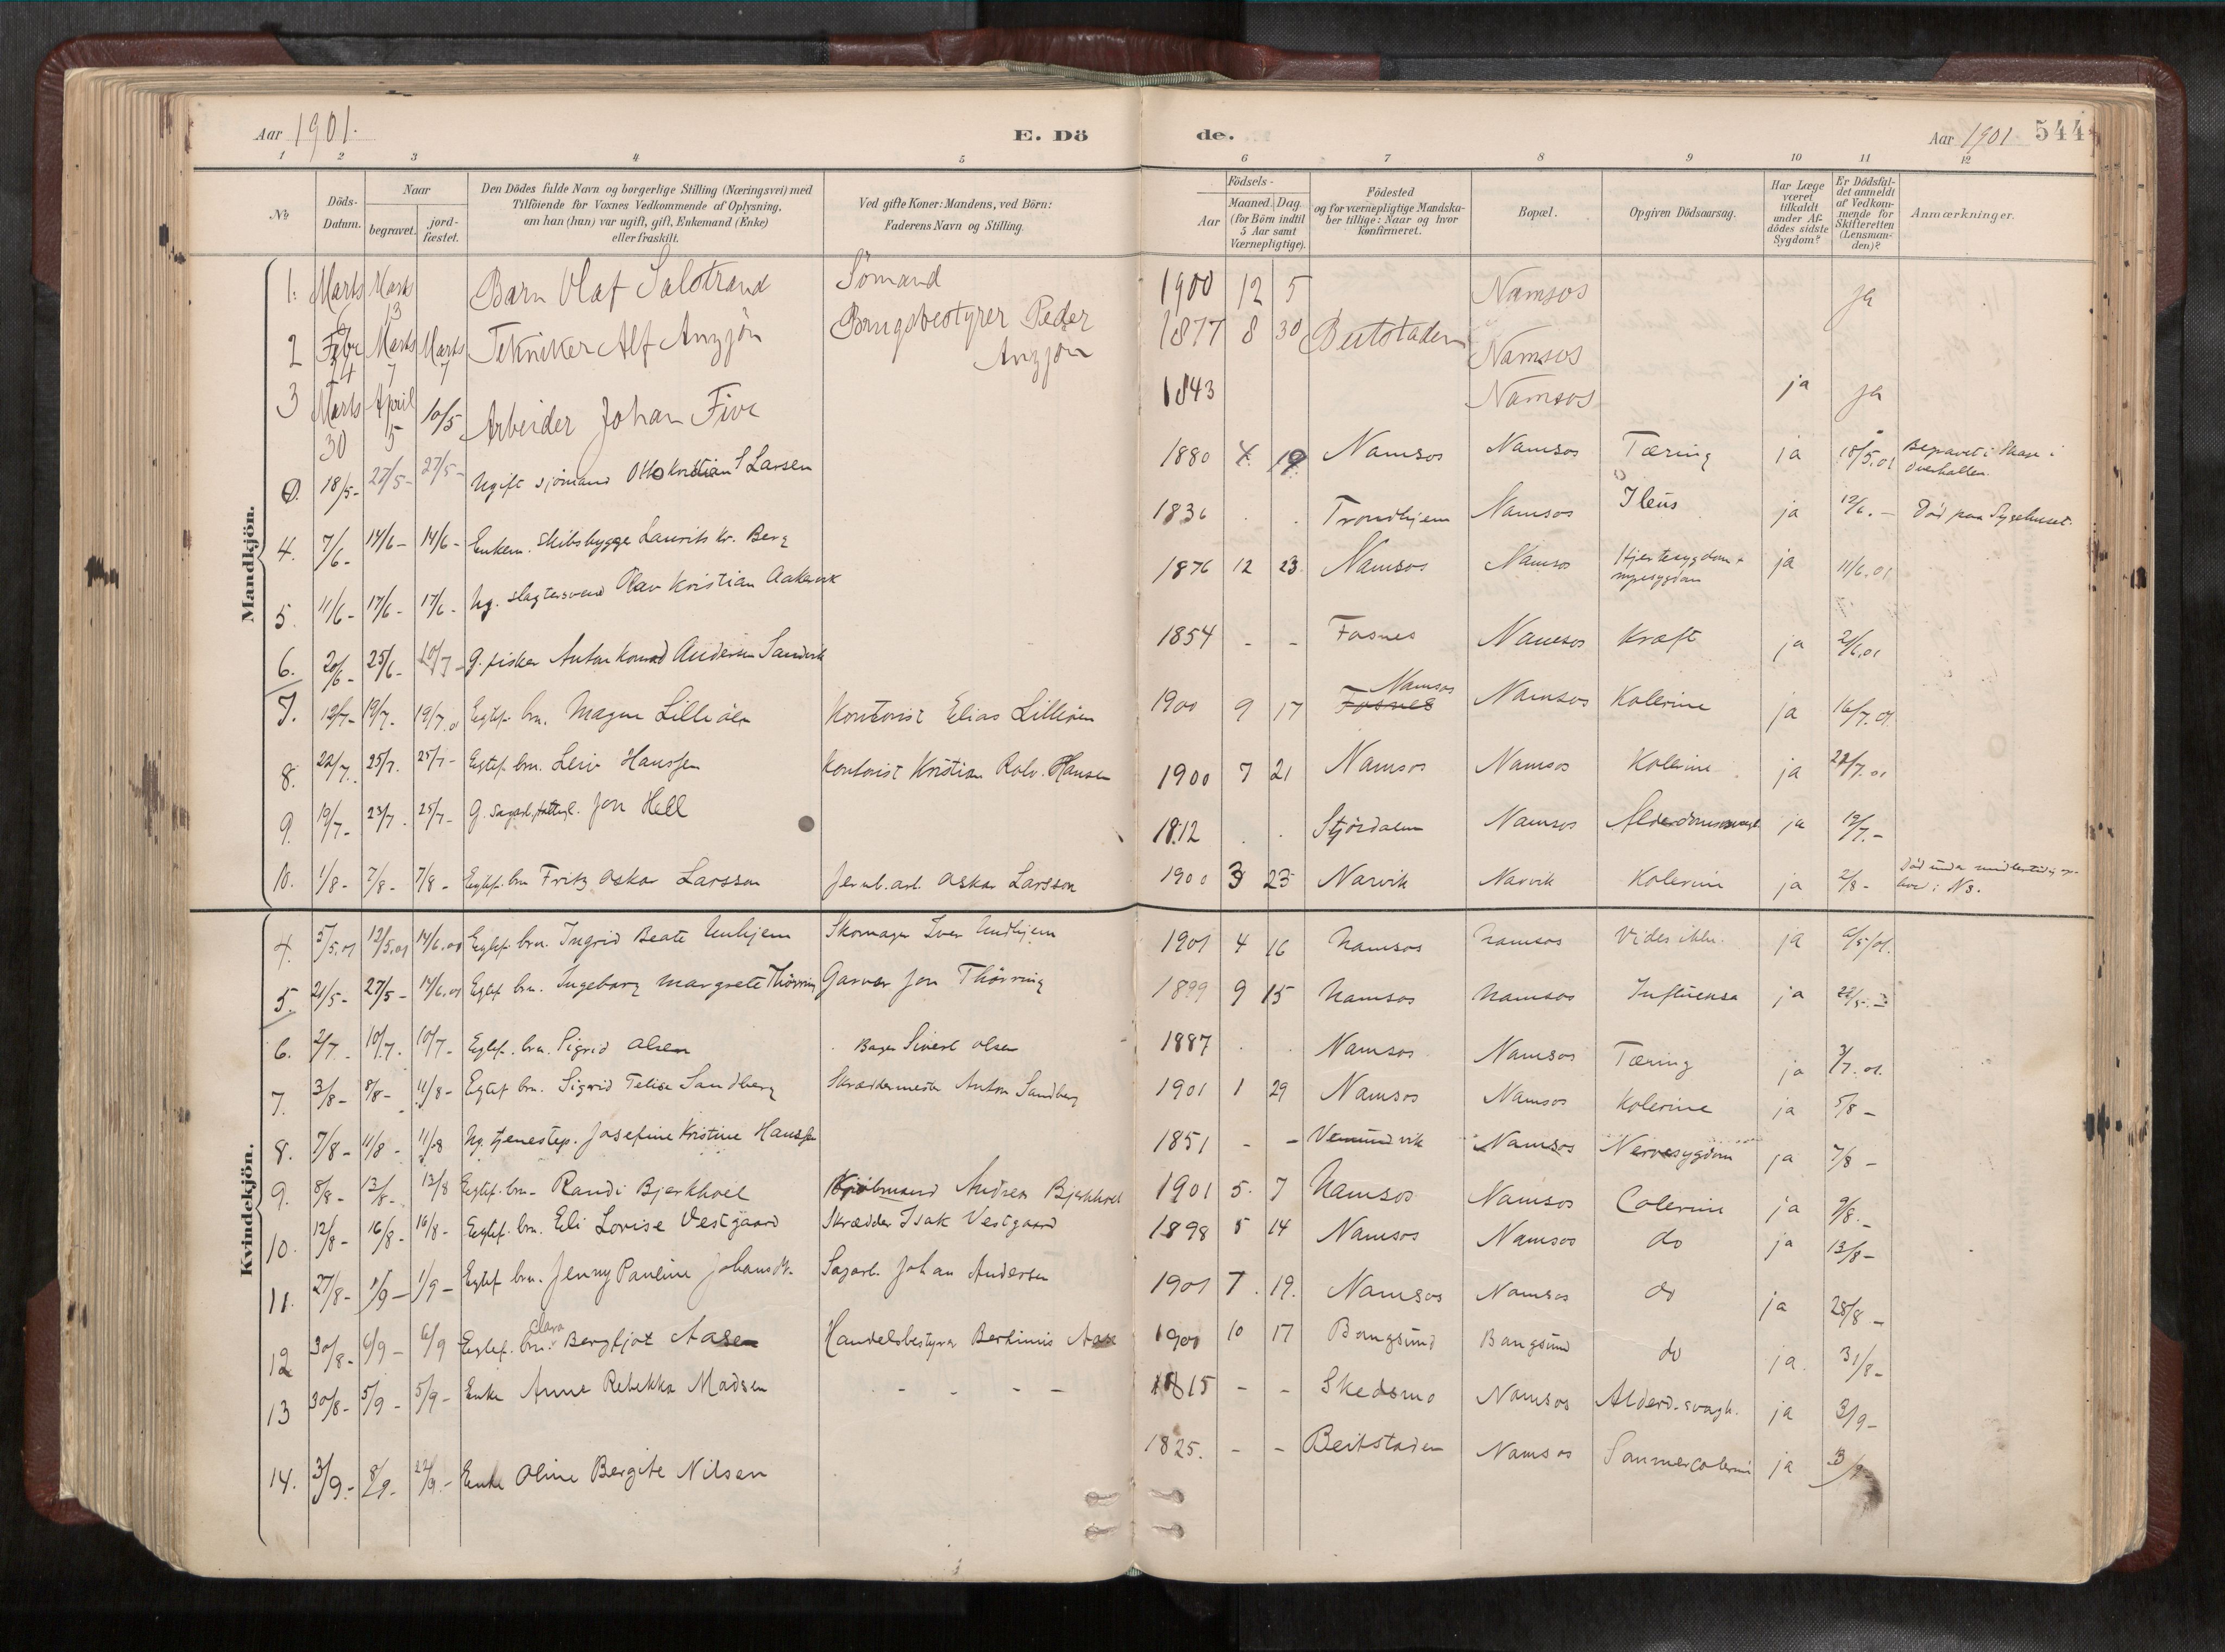 Aar 1901.
E. Dö
de.
Aar 1901
544
1 2 3 4 5 6 7 8 9 10 11 12
No
Döds-Datum.
Naar
begravet.
jord-fæstet.
Den Dödes fulde Navn og borgerlige Stilling (Næringsvei) med
Tilföiende for Voxnes Vedkommende af Oplysning,
om han (hun) var ugift, gift, Enkemand (Enke)
eller fraskilt.
Ved gifte Koner: Mandens, ved Börn:
Faderens Navn og Stilling.
Födsels-
Aar
Maaned. Dag.
(for Börn indtil
5 Aar samt
Værnepligtige).
Födested
og for værnepligtige Mandska-
ber tillige: Naar og hvor
konfirmeret.
Bopæl.
Opgiven Dödsaarsag.
Har Læge
været
tilkaldt
under Af-
dödes sidste
Sygdom?
Er Dödsfal-
det anmeldt
af Vedkom-
mende for
Skifteretten
(Lensman-
den)?
Anmærkninger.
Mandkjön.
1. Marts 6 Marts 13 Barn Olaf Salstrand Sömand 1900 12 5 Namsos ja
2 Febr 24 Marts 7 Marts 7 Tekniker Alf Anzjön Brugsbestyrer Peder Anzjön 1877 8 30 Beitstaden Namsos
3 Marts 30 April 5 10/5 Arbeider Johan Five 1843 Namsos ja ja
0. 18/5- 27/5- 27/5- Ugift sjömand Otto Kristian Larsen 1880 19 Namsos Namsos Tæring ja 18/5.01 Begravet i i Overhallen.
4. 7/6- 14/6- 14/6- Enkem. Skibsbygge Laurits Kr. Berg 1836 Trondhjem Namsos Ileus ja 12/6.- Död paa Sygehuset.
5. 11/6- 17/6- 17/6- Ug. slagtersvend Olav Kristian Aakervik 1876 12 23. Namsos Namsos Hjertesygdom + nyresygdom ja 11/6.01
6. 20/6- 25/6- 10/7- G. fisker Anton Konrad Andersen Sandvik 1854 - - Fosnes Namsos Kræft ja 21/6.01
7. 12/7- 19/7- 19/7. Egtef. brn. Magne Lilleöen Kontorist Elias Lilleöen 1900 9 17 Namsos Fosnes Namsos Kolerine ja 16/7.01
8. 22/7. 25/7. 25/7- Egtef. brn. Leiv Hanssen Kontorist Kristian Rolv. Hansen 1900 7 21 Namsos Namsos Kolerine ja 22/7.01
9. 19/7- 23/7. 25/7- G. Jon Hell 1812 Stjördalen Namsos Alderdomssvagh ja 19/7.-
10. 1/8- 7/8- 7/8- Egtef. brn Fritz Oskar Larsson Jernb. arb. Oskar Larsson 1900 3 23 Narvik Narvik Kolerine ja 2/8- Död under midlertidig op- hold i Ns.
Kvindekjön.
4. 5/5.01 12/5.01 14/6.01 Egtef. brn. Ingrid Beate Undhjem Skomager Iver Undhjem 1901 4 16 Namsos Namsos Vides ikke. ja 6/5/01.
5. 21/5- 27/5- 14/6.01 Egtef brn. Ingeborg Margrete Thörring Garver Jon Thörring 1899 9 15 Namsos Namsos Influensa ja 22/5.-
6. 2/7. 10/7. 10/7- Egtef. brn. Sigrid Olsen Bager Sivert Olsen 1887 Namsos Namsos Tæring ja 3/7.01.
7. 3/8- 8/8- 11/8- Egtef brn. Sigrid Felise Sandberg Skræddermester Anton Sandberg 1901 1 29 Namsos Namsos Kolerine ja 5/8-
8. 7/8- 11/8- 11/8 Ug. tjenestep. Josefine Kristine Hanssen 1851 - - Vemundvik Namsos Nervesygdom ja 7/8-
9. 8/8- 13/8- 13/8 Egtef. brn- Randi Bjerkhoel Kjöbmand Andreas Bjerkhoel 1901 5. 7 Namsos Namsos Colerine ja 9/8.-
10. 12/8- 16/8- 16/8- Egtef. brn. Eli Lovise Vestgaard Skrædder Isak Vestgaard 1898 5 14 Namsos Namsos do ja 13/8-
11. 27/8- 1/9- 1/9- Egtef brn. Jenny Pauline Johansdt. Sagarb. Johan Andersen 1901 7. 19. Namsos Namsos do ja 28/8-
12 30/8- 6/9- 6/9 Egtef. brn. Clara Bergljot Aasen Handelsbestyrer Berthinius Aase 1900 10 17 Bangsund Bangsund do ja. 31/8-
13 30/8- 5/9- 5/9- Enke Anne Rebekka Madsen - - - - 1815 - - Skedsmo Namsos Alderd.svagh. ja 3/9-
14. 3/9- 8/9- 22/9.- Enke Oline Bergite Nilsen 1825. - - Beitstaden Namsos Sommercolerine ja 3/9-